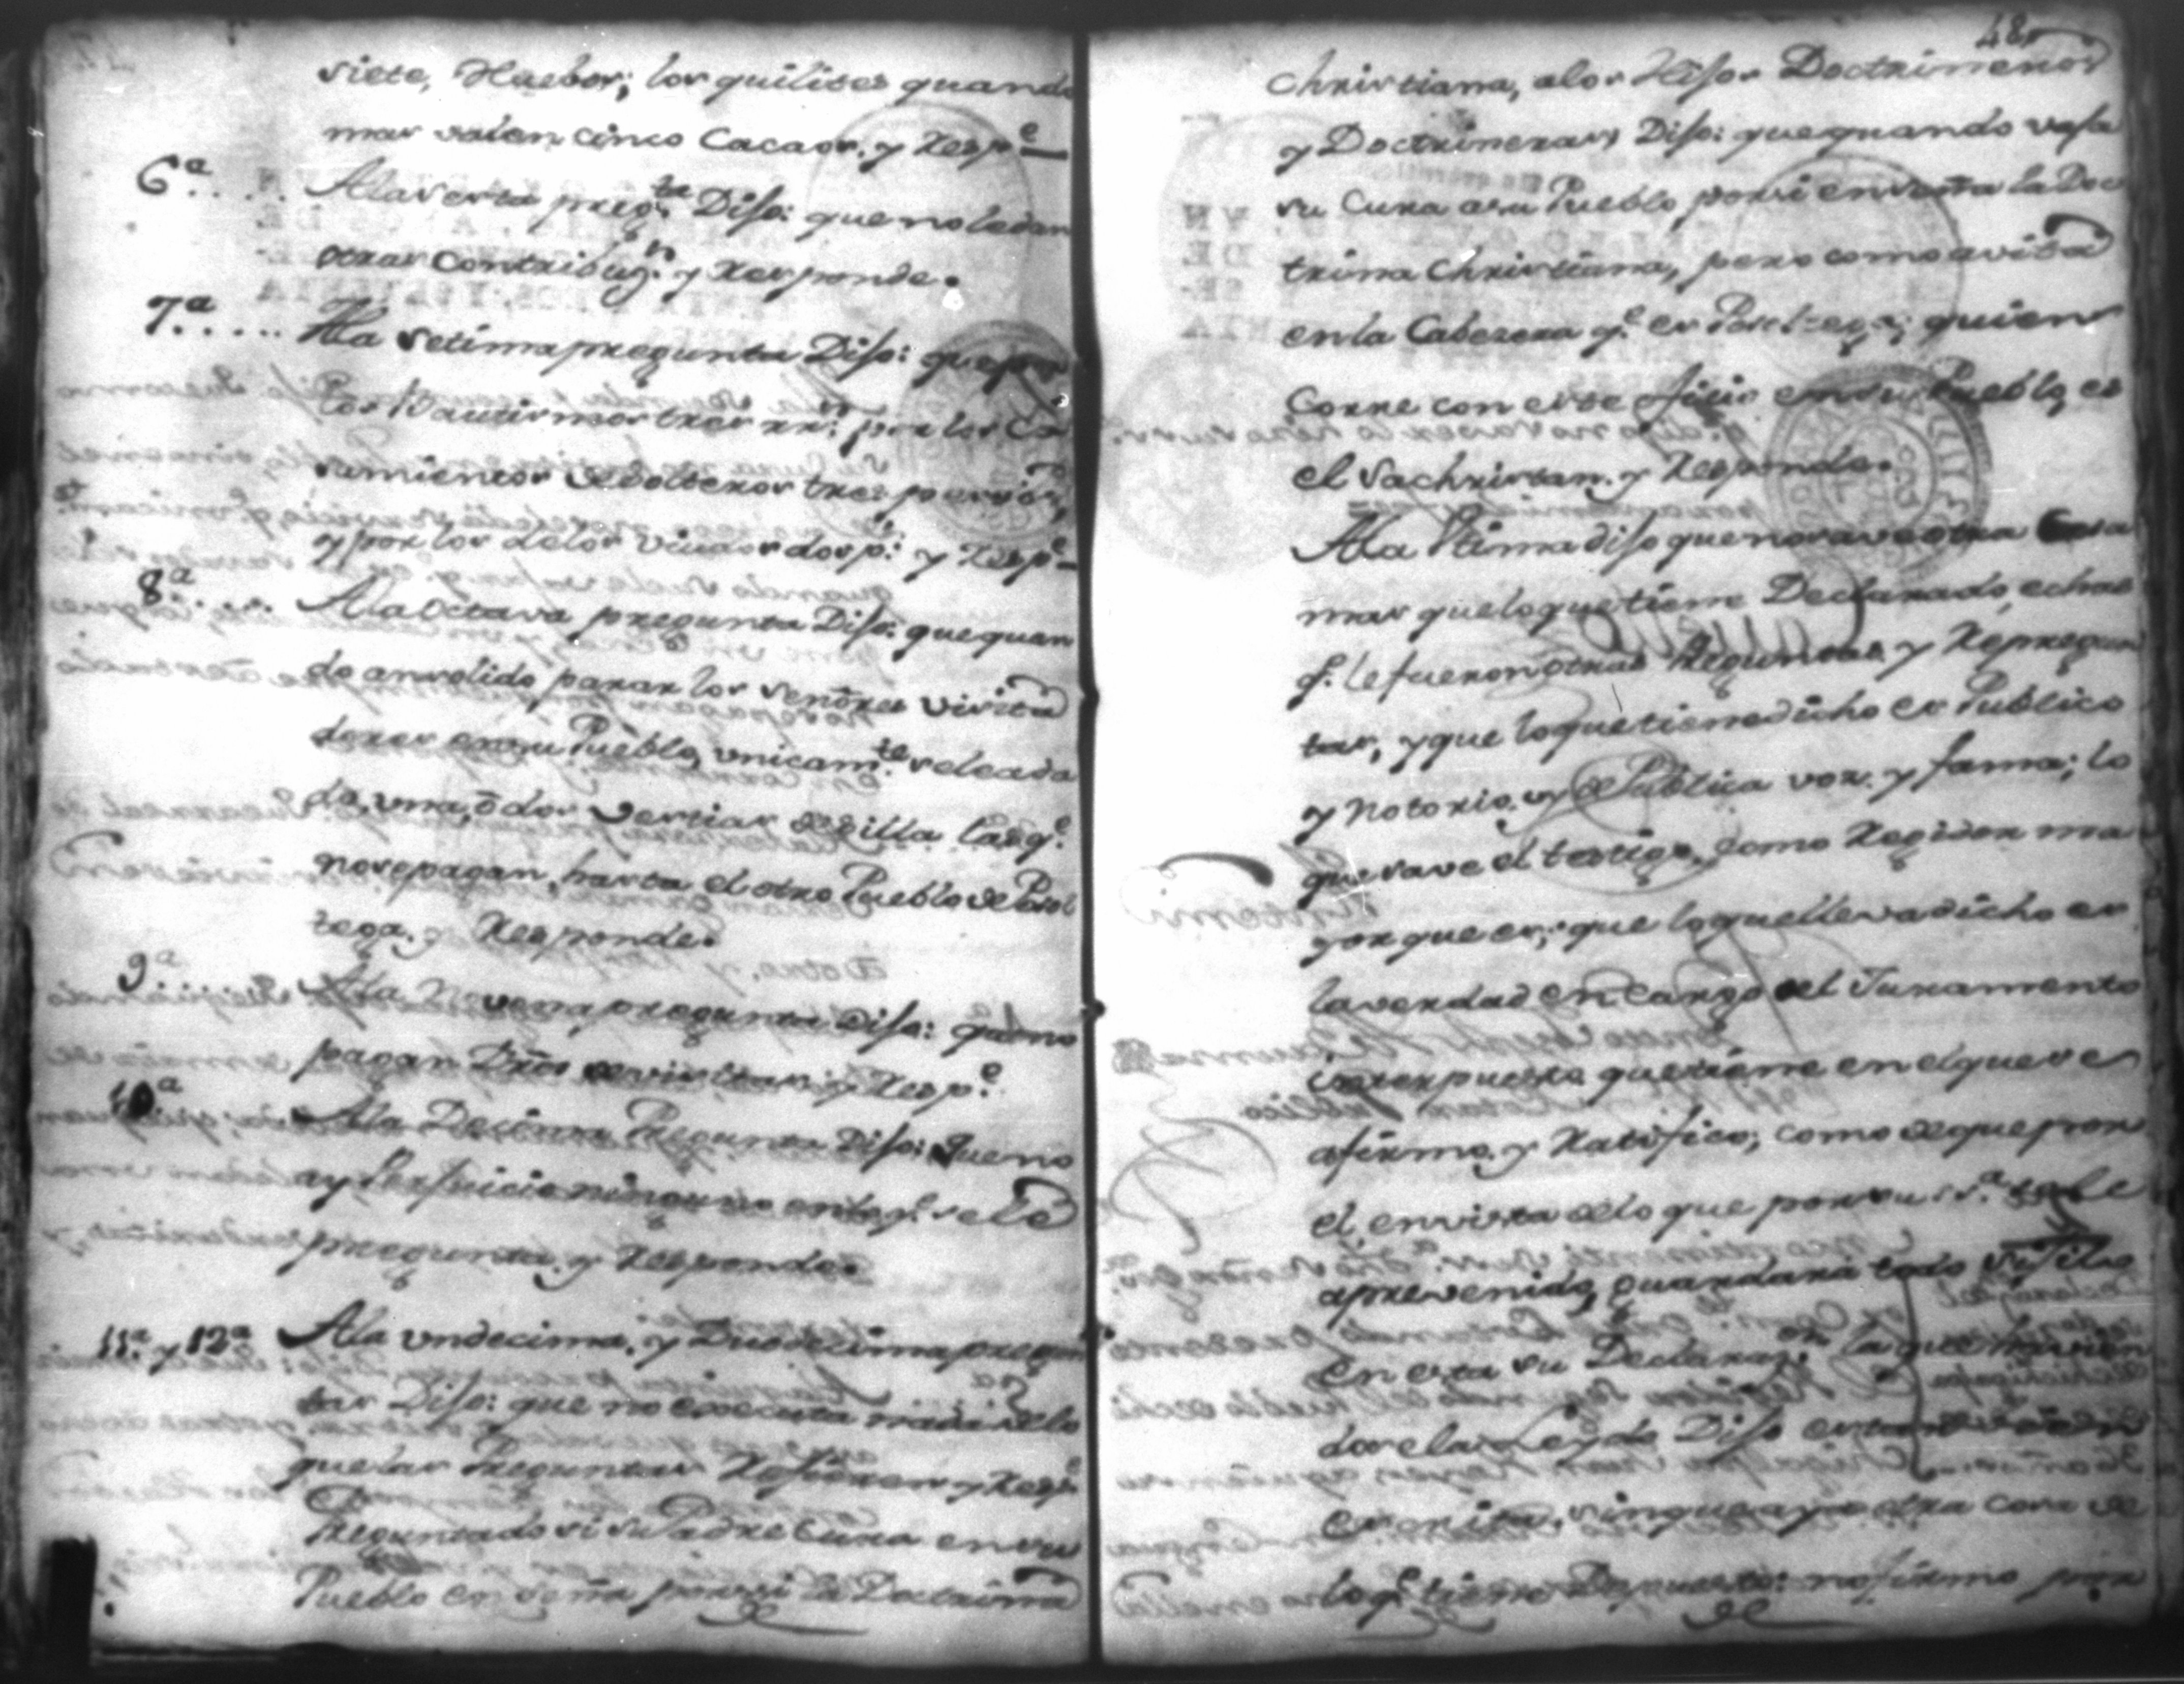 siete, Huebos; los quilites quando
mas valen cinco Cacaos. y Resp.e
6.a .... Ala sexta preg.ta Diso: que no le dan
otras Contribuz.n y Responde.
7.a .... Ala setima pregunta Diso: que por
los Bautismos tres rr.s por los Ca
samientos de solteros tres pesos,
y por los delos viudos dos p.s y Resp.e
8.a .... Ala Octava pregunta Diso: que quan
do an solido pasar los señores visita
dores en su Pueblo, unicam.te se le a da
do, una, ô dos vestias de silla las q.e
no se pagan, hasta el otro Pueblo de Posol
tega. y Responde.
9.a .... Ala Novena pregunta diso: que no
pagan Dros de visitas. y Resp.e
10.a Ala Decima Pregunta Diso: Que no
ay Perjuicio ninguno en lo q.e se le
pregunta. y Responde.
11.a y 12.a Ala undecima, y Duodecima pregun
tas Diso: que no executa nada de lo
que las Preguntas Refieren y Resp.e
Preguntado si su Padre Cura en su
Pueblo enseña por si la Doctrina
48
Christiana, a los Hijos Doctrineros
y Doctrineras, Diso: que quando vaja
su Cura a su Pueblo por si enseña la Doc
trina Christiana, pero como avita
en la Cabezera q.e es Posoltega; quien
Corre con este oficio en su Pueblo, es
el Sachristan. y Responde.
Ala Vltima diso que no save otra Cosa
mas que lo que tiene Declarado, echas
q.e le fueron otras Preguntas y Repregun
tas, y que lo que tiene dicho es Publico
y Notorio, y de Publica voz. y fama; lo
que save el testigo, como Regidor ma
yor que es; que lo que lleva dicho es
la verdad en cargo del Juramento
interpuesto que tiene en el que se
afirmo, y Ratifico; como de que por
el, en vista de lo que por su s.a se le
a prevenido, guardara todo sijilo
en esta su Declaraz.on la que havien
dosela Leydo Diso estar vien
escrita, sin que aya otra cosa de
lo q.e tiene Depuesto: no firmo por